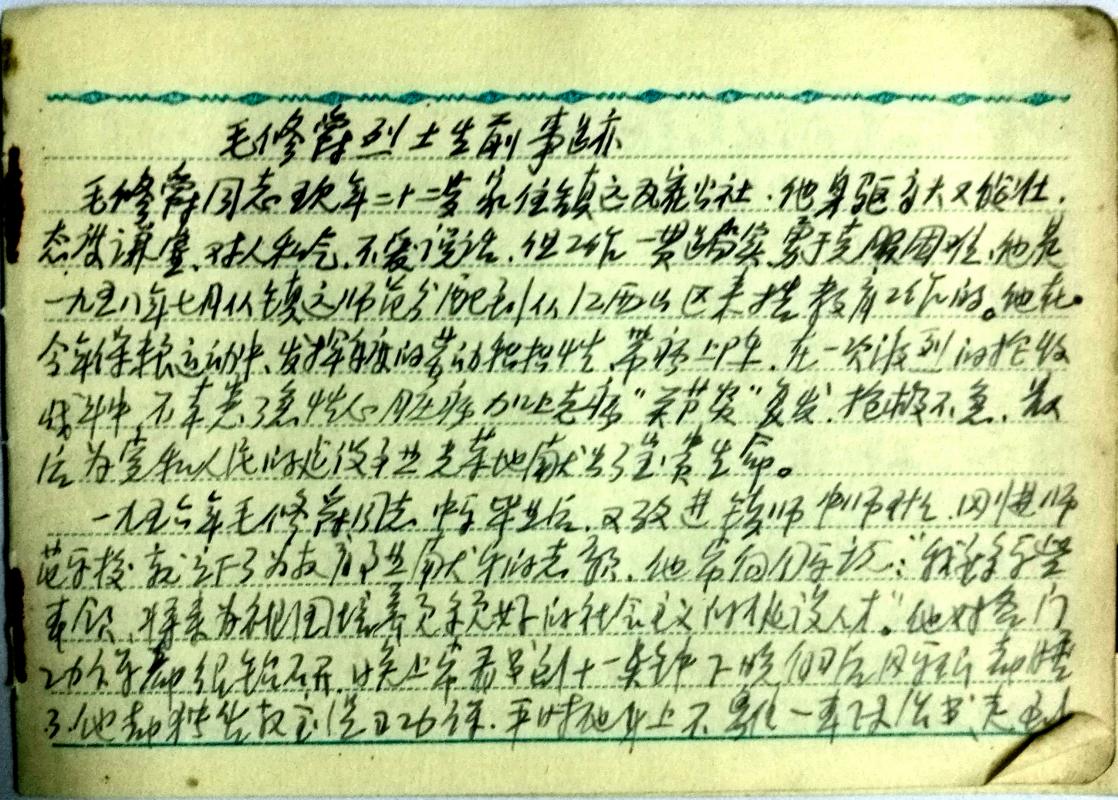 毛修爵烈士生前事迹
毛修爵同志现年二十二岁家住镇远瓦寨公社．他身驱高大又结壮．
态度谦虚、对人和气、不爱说话．但工作一贯踏实勇于克服困难、他是
一九五八年七月从镇远师范分配到从江西山区来搞教育工作的。他在
今年保粮运动中、发挥高度的劳动积极性、带病上阵．在一次激烈的抢收
战斗中，不幸患了急性心脏病加上克病"关节炎"复发．抢救不急、最
后为党和人民的建设事业光荣地献出了宝贵生命。
一九五六年毛修爵同志中学毕业后．又考进镇师中师科、刚进师
范学校就立下了为教育事业献身的志愿．他常向同学说："我要多学些
本领、将来为祖国培养更多更好的社会主义的建设人才"。他对各门
功课都很钻研．晚上常看书到十一点钟下晚自习后同学们都睡
了．他都独坐教室温习功课．平时他身上不离一本政治书